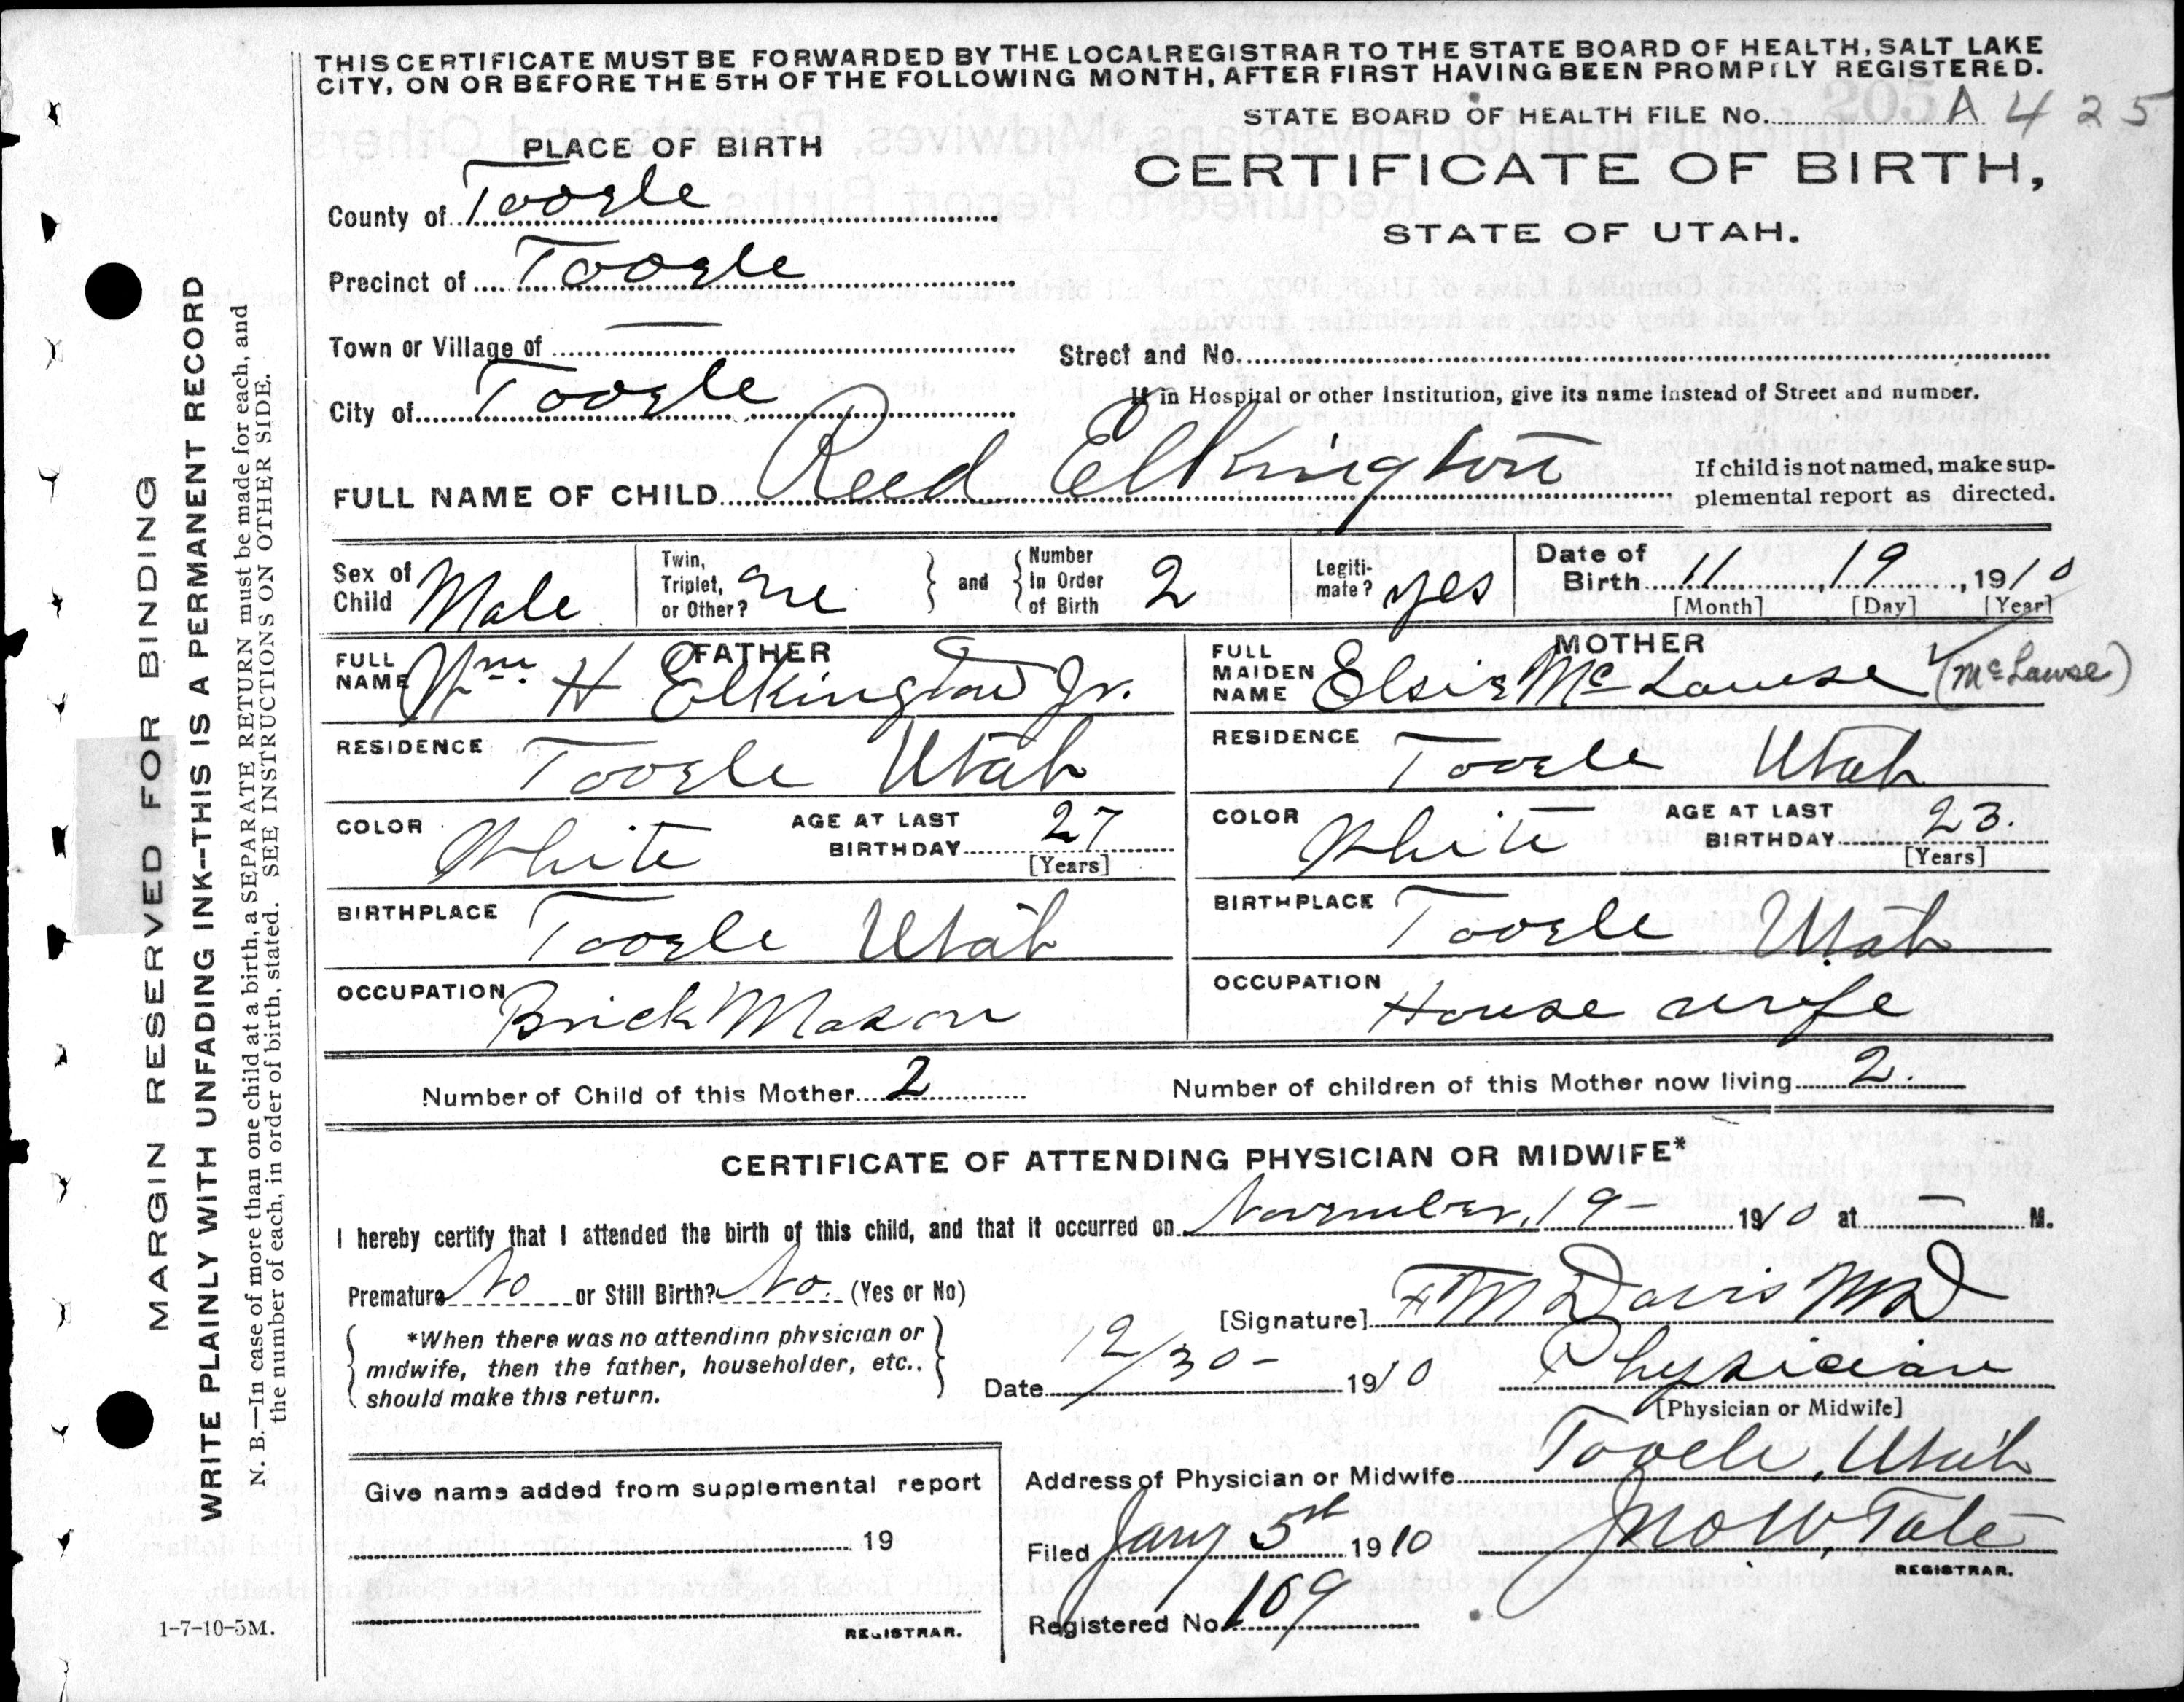 THIS CERTIFICATE MUST BE FORWARDED BY THE LOCAL REGISTRAR TO THE STATE BOARD OF HEALTH, SALT LAKE
CITY, ON OR BEFORE THE 5TH OF THE FOLLOWING MONTH, AFTER FIRST HAVING BEEN PROMPTLY REGISTERED.
STATE BOARD OF HEALTH FILE No. A 425
205
PLACE OF BIRTH
CERTIFICATE OF BIRTH,
STATE OF UTAH.
County of Tooele
Precinct of Tooele
Town or Village of —
Street and No.
City of Tooele
If in Hospital or other Institution, give its name instead of Street and number.
FULL NAME OF CHILD Reed Elkington
If child is not named, make sup-
plemental report as directed.
Sex of Child Male
Twin, Triplet, or Other? One
and Number In Order of Birth 2
Legiti-mate? yes
Date of Birth 11 19, 1910
[Month] [Day] [Year]
FATHER
FULL NAME Wm. H Elkington Jr.
RESIDENCE Tooele Utah
COLOR White
AGE AT LAST BIRTHDAY 27
[Years]
BIRTHPLACE Tooele Utah
OCCUPATION Brick Mason
MOTHER
FULL MAIDEN NAME Elsie McLawse (McLawse)
RESIDENCE Tooele Utah
COLOR White
AGE AT LAST BIRTHDAY 23.
[Years]
BIRTHPLACE Tooele Utah
OCCUPATION House wife
Number of Child of this Mother 2
Number of children of this Mother now living 2.
CERTIFICATE OF ATTENDING PHYSICIAN OR MIDWIFE*
I hereby certify that I attended the birth of this child, and that it occurred on November, 19 – 1910 at — M.
Premature No or Still Birth? No. (Yes or No)
[Signature] F M Davis MD
*When there was no attending physician or
midwife, then the father, householder, etc.,
should make this return.
Date 12/30 – 1910
Physician
[Physician or Midwife]
Address of Physician or Midwife Tooele, Utah
Give name added from supplemental report
19
REGISTRAR.
Filed Jany 5st 1910
Jno W. Tate
REGISTRAR.
Registered No. 169
1-7-10-5M.
MARGIN RESERVED FOR BINDING
WRITE PLAINLY WITH UNFADING INK--THIS IS A PERMANENT RECORD
N. B.—In case of more than one child at a birth, a SEPARATE RETURN must be made for each, and
the number of each, in order of birth, stated. SEE INSTRUCTIONS ON OTHER SIDE.